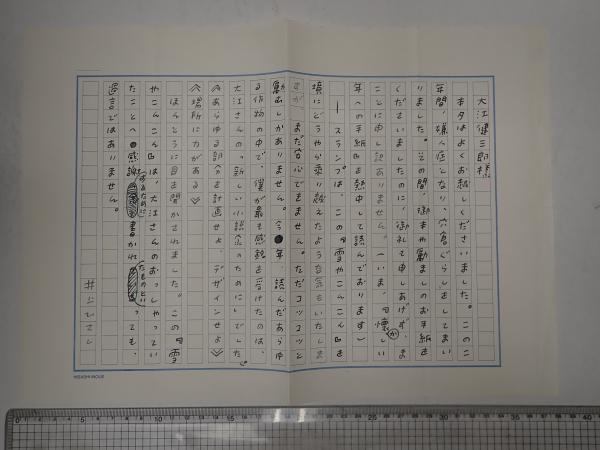 大江健三郎様
本日はよくお越しくださいました。このこ
年間、嫌人症となり、穴倉ぐらしをしてまい
りました。その間、御本や励ましのお手紙を
くださいましたのに、御礼も申しあげず、ま
ことに申し訳ありません。(いま、『懐かしい
年への手紙』を熱中して読んでおります)
ースランプは、この『雪やこんこん』を
境にどうやら乗り越えたような気もいたしま
すが、まだ安心できません。ただコツコツと
勵むしかありません。今年、読んだあらゆ
る作物の中で、僕が最も感銘を受けたのは、
大江さんの「新しい小説のために」でした。
《あらゆる部分を計画せよ、デザインせよ》
《場所に力がある》
ほんとうに目を開かされました。この『雪
やこんこん』は、大江さんのおっしゃってい
たことへ感謝するために書かれたものといっても、
過言ではありません。
井上ひさし
HISASHI INOUE
0 5 10 15 20 25 30 35 40